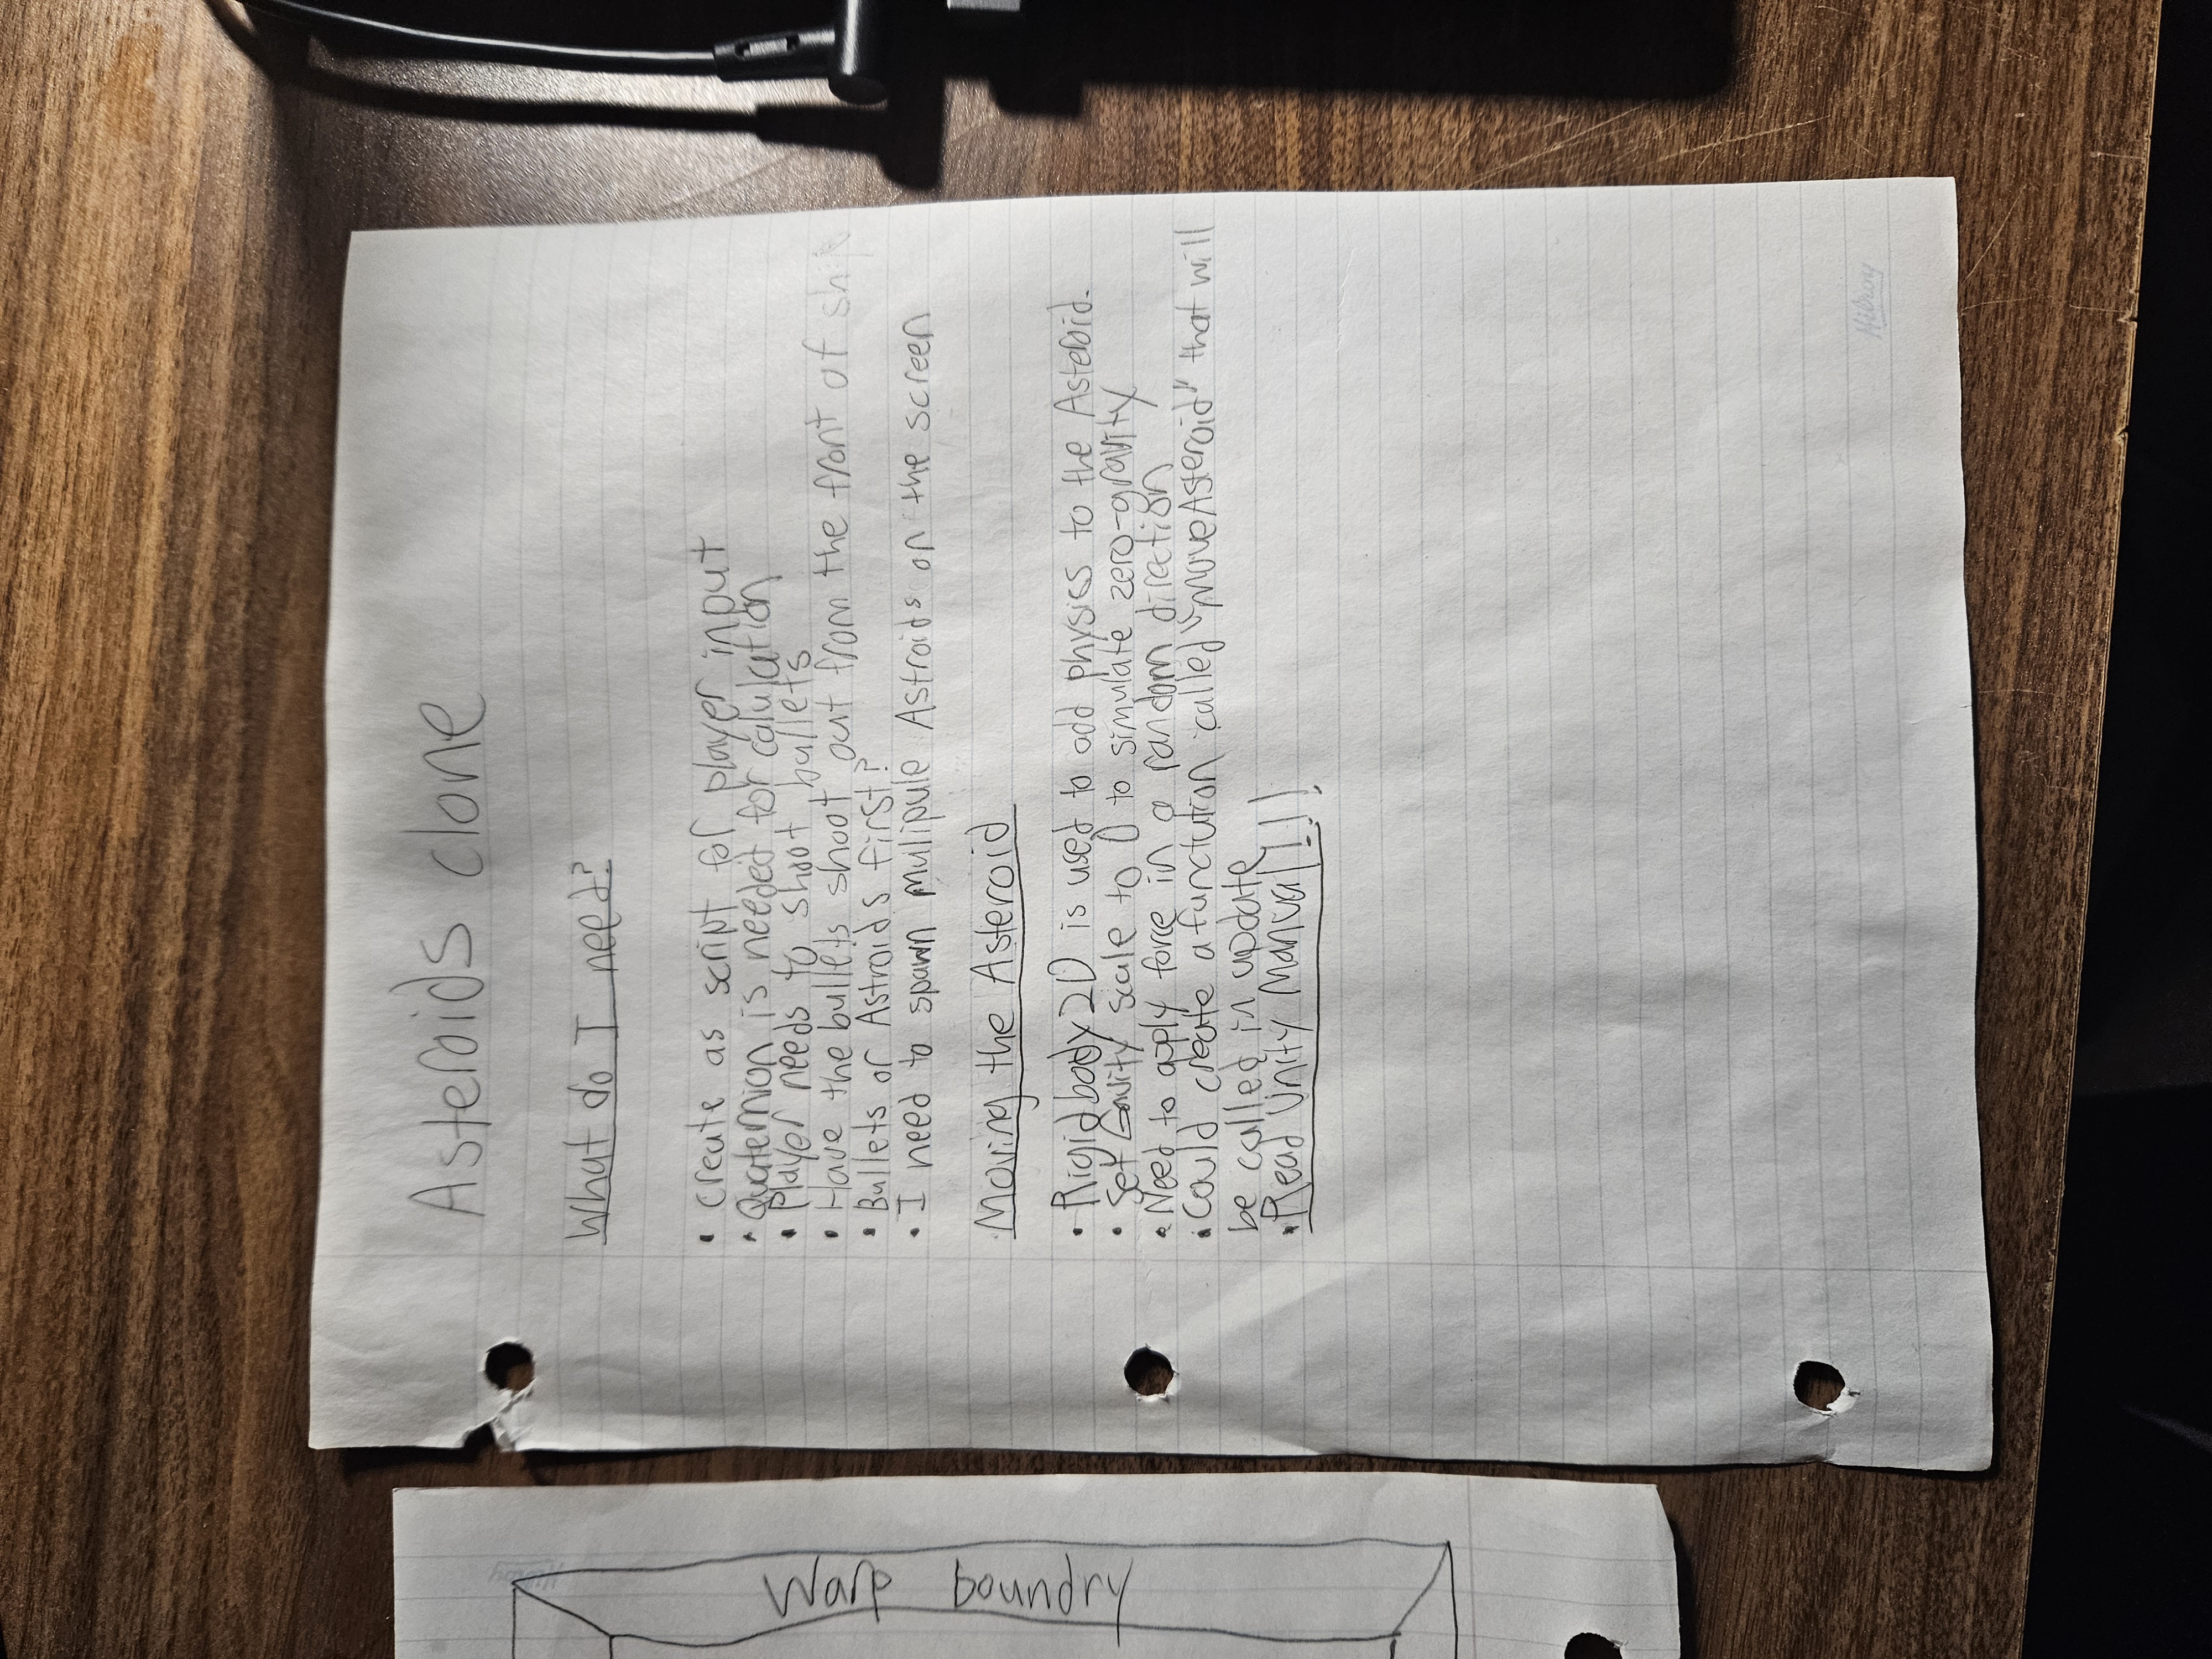 Asteroids clone
What do I need?
• create as script for player input
• Quaternion is needed for calulation
• Player needs to shoot bullets
• Have the bullets shoot out from the front of ship
• Bullets or Astroids first?
• I need to spawn mulipule Astroids on the screen
Moving the Asteroid
• Rigidbody2D is used to add physics to the Asteroid.
• Set Gravity scale to 0 to simulate zero-gravity
• Need to apply force in a random direction
• Could create a functution called "MoveAsteroid" that will
be called in update
• Read Unity Manual!!!
Hilroy
Warp boundry